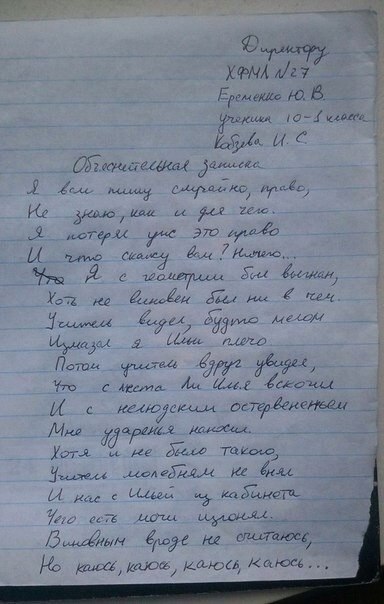 Директору
ХФМЛ №27
Еременко Ю. В.
ученика 10-3 класса
Кобзева И. С.
Объяснительная записка
Я вам пишу случайно, право,
Не знаю, как и для чего.
Я потерял уж это право
И что скажу вам? Ничего...
Что Я с геометрии был выгнан,
Хоть не виновен был ни в чем.
Учитель видел, будто мелом
Измазал я Ильи плечо
Потом учитель вдруг увидел,
Что с места Ли Илья вскочил
И с нелюдским остервененьем
Мне ударенья наносил.
Хотя и не было такого,
Учитель молебням не внял
И нас с Ильей из кабинета
Чего есть мочи изгонял.
Виновным вроде не считаюсь,
Но каюсь, каюсь, каюсь, каюсь...